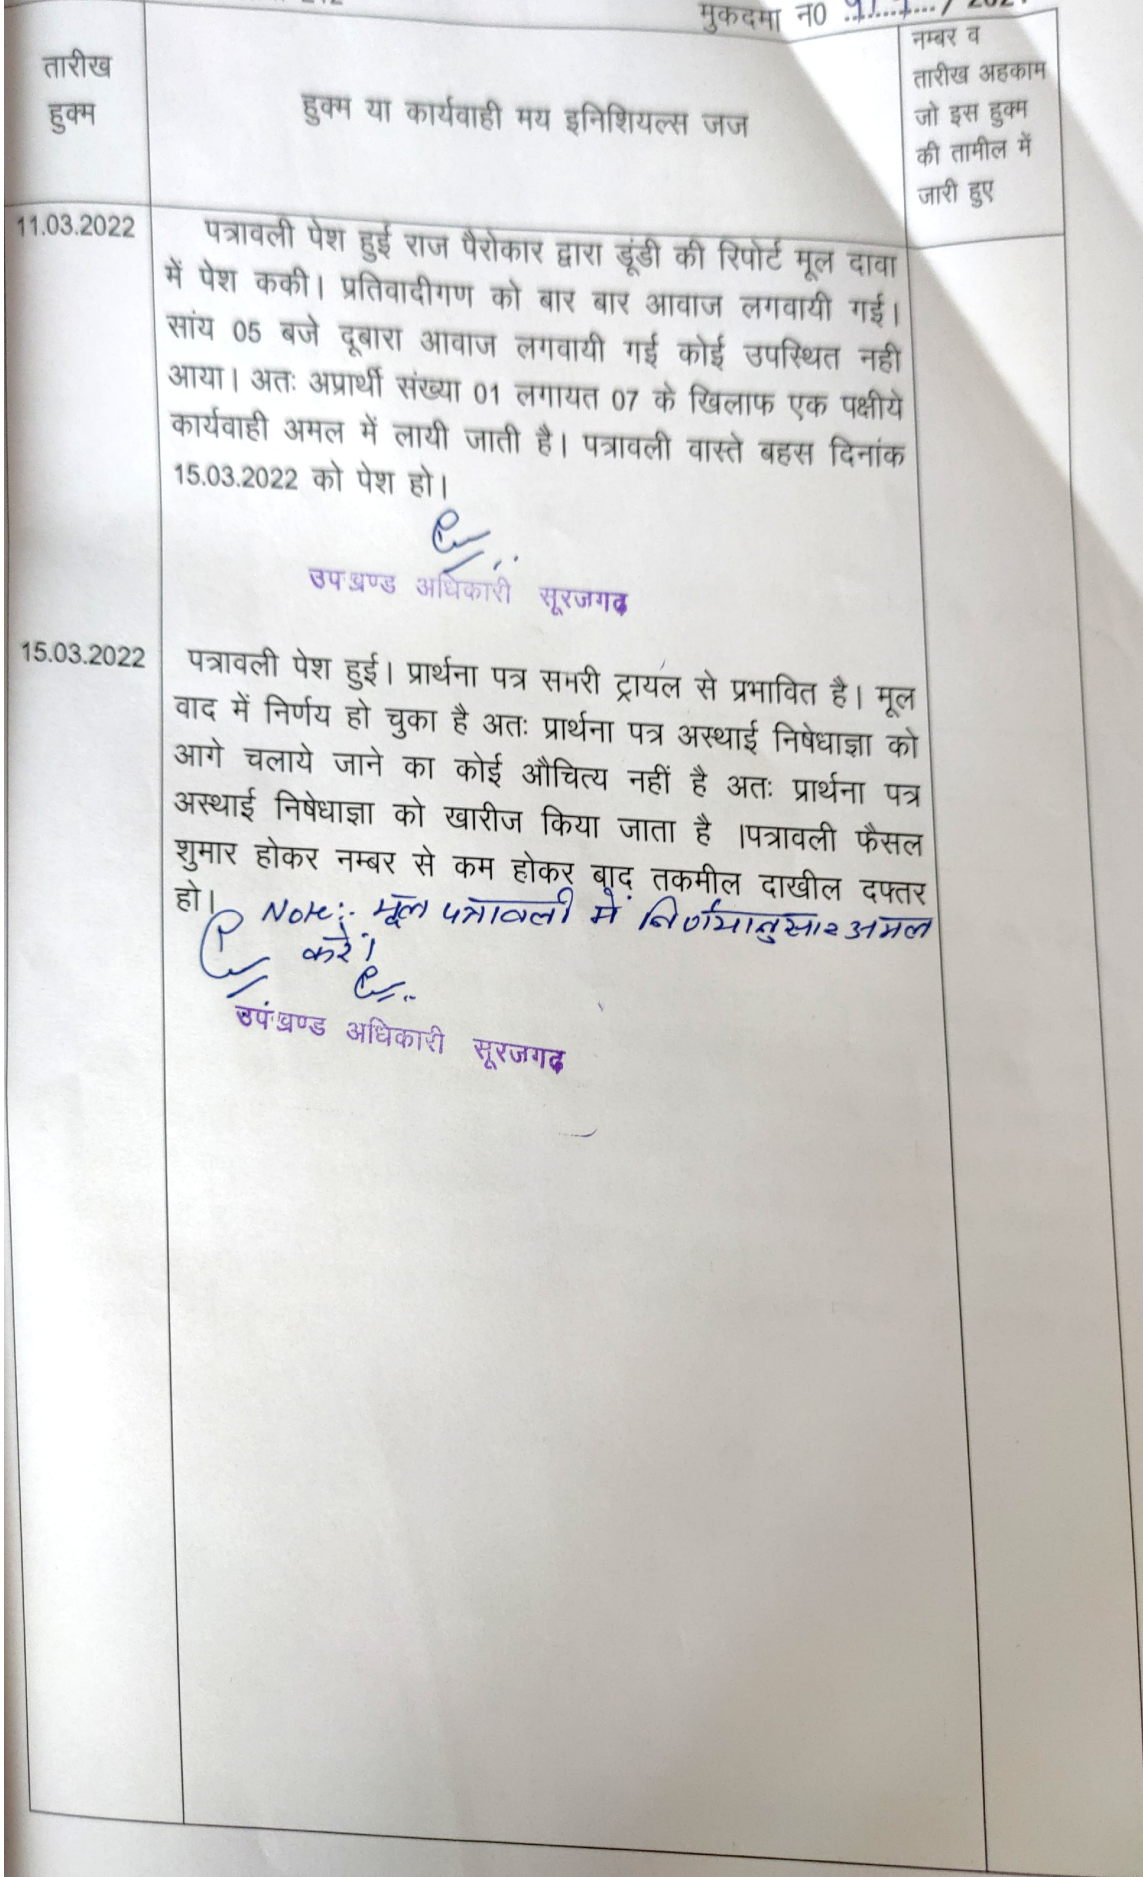 मुकदमा न0
तारीख
हुक्म
हुक्म या कार्यवाही मय इनिशियल्स जज
नम्बर व
तारीख अहकाम
जो इस हुक्म
की तामील में
जारी हुए
11.03.2022
पत्रावली पेश हुई राज पैरोकार द्वारा डूंडी की रिपोर्ट मूल दावा
में पेश ककी। प्रतिवादीगण को बार बार आवाज लगवायी गई।
सांय 05 बजे दूबारा आवाज लगवायी गई कोई उपस्थित नही
आया। अतः अप्रार्थी संख्या 01 लगायत 07 के खिलाफ एक पक्षीये
कार्यवाही अमल में लायी जाती है। पत्रावली वास्ते बहस दिनांक
15.03.2022 को पेश हो।
उपखण्ड अधिकारी सूरजगढ
15.03.2022
पत्रावली पेश हुई। प्रार्थना पत्र समरी ट्रायल से प्रभावित है। मूल
वाद में निर्णय हो चुका है अतः प्रार्थना पत्र अस्थाई निषेधाज्ञा को
आगे चलाये जाने का कोई औचित्य नहीं है अतः प्रार्थना पत्र
अस्थाई निषेधाज्ञा को खारीज किया जाता है ।पत्रावली फैसल
शुमार होकर नम्बर से कम होकर बाद तकमील दाखील दफ्तर
हो।
Note:- मूल पत्रावली में निर्णयानुसार अमल
करें।
उपखण्ड अधिकारी सूरजगढ